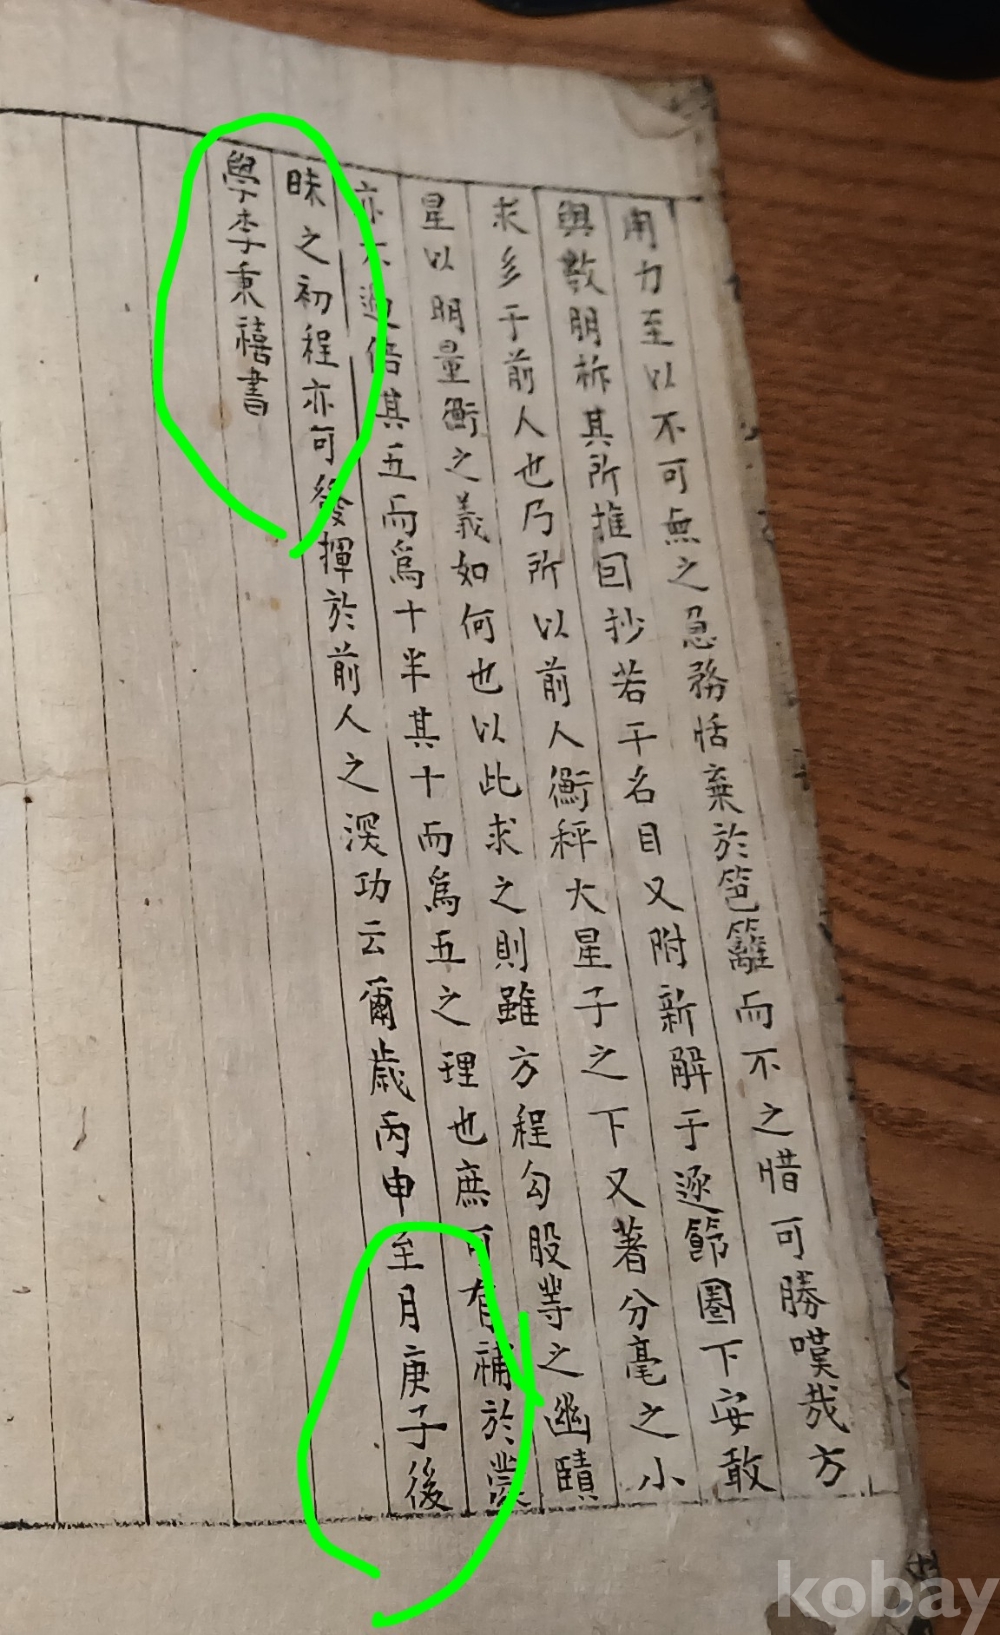 用力至以不可無之急務恬棄於笆籬而不之惜可勝嘆哉方
與數朋柝其所推回抄若干名目又附新解于逐節圈下安敢
求多于前人也乃所以前人衡秤大星子之下又著分毫之小
星以明量衡之義如何也以此求之則雖方程勾股等之幽賾
亦不過倍其五而爲十半其十而爲五之理也庶可有補於蒙
昧之初程亦可發揮於前人之深功云爾歲丙申至月庚子後
學李秉禧書
kobay